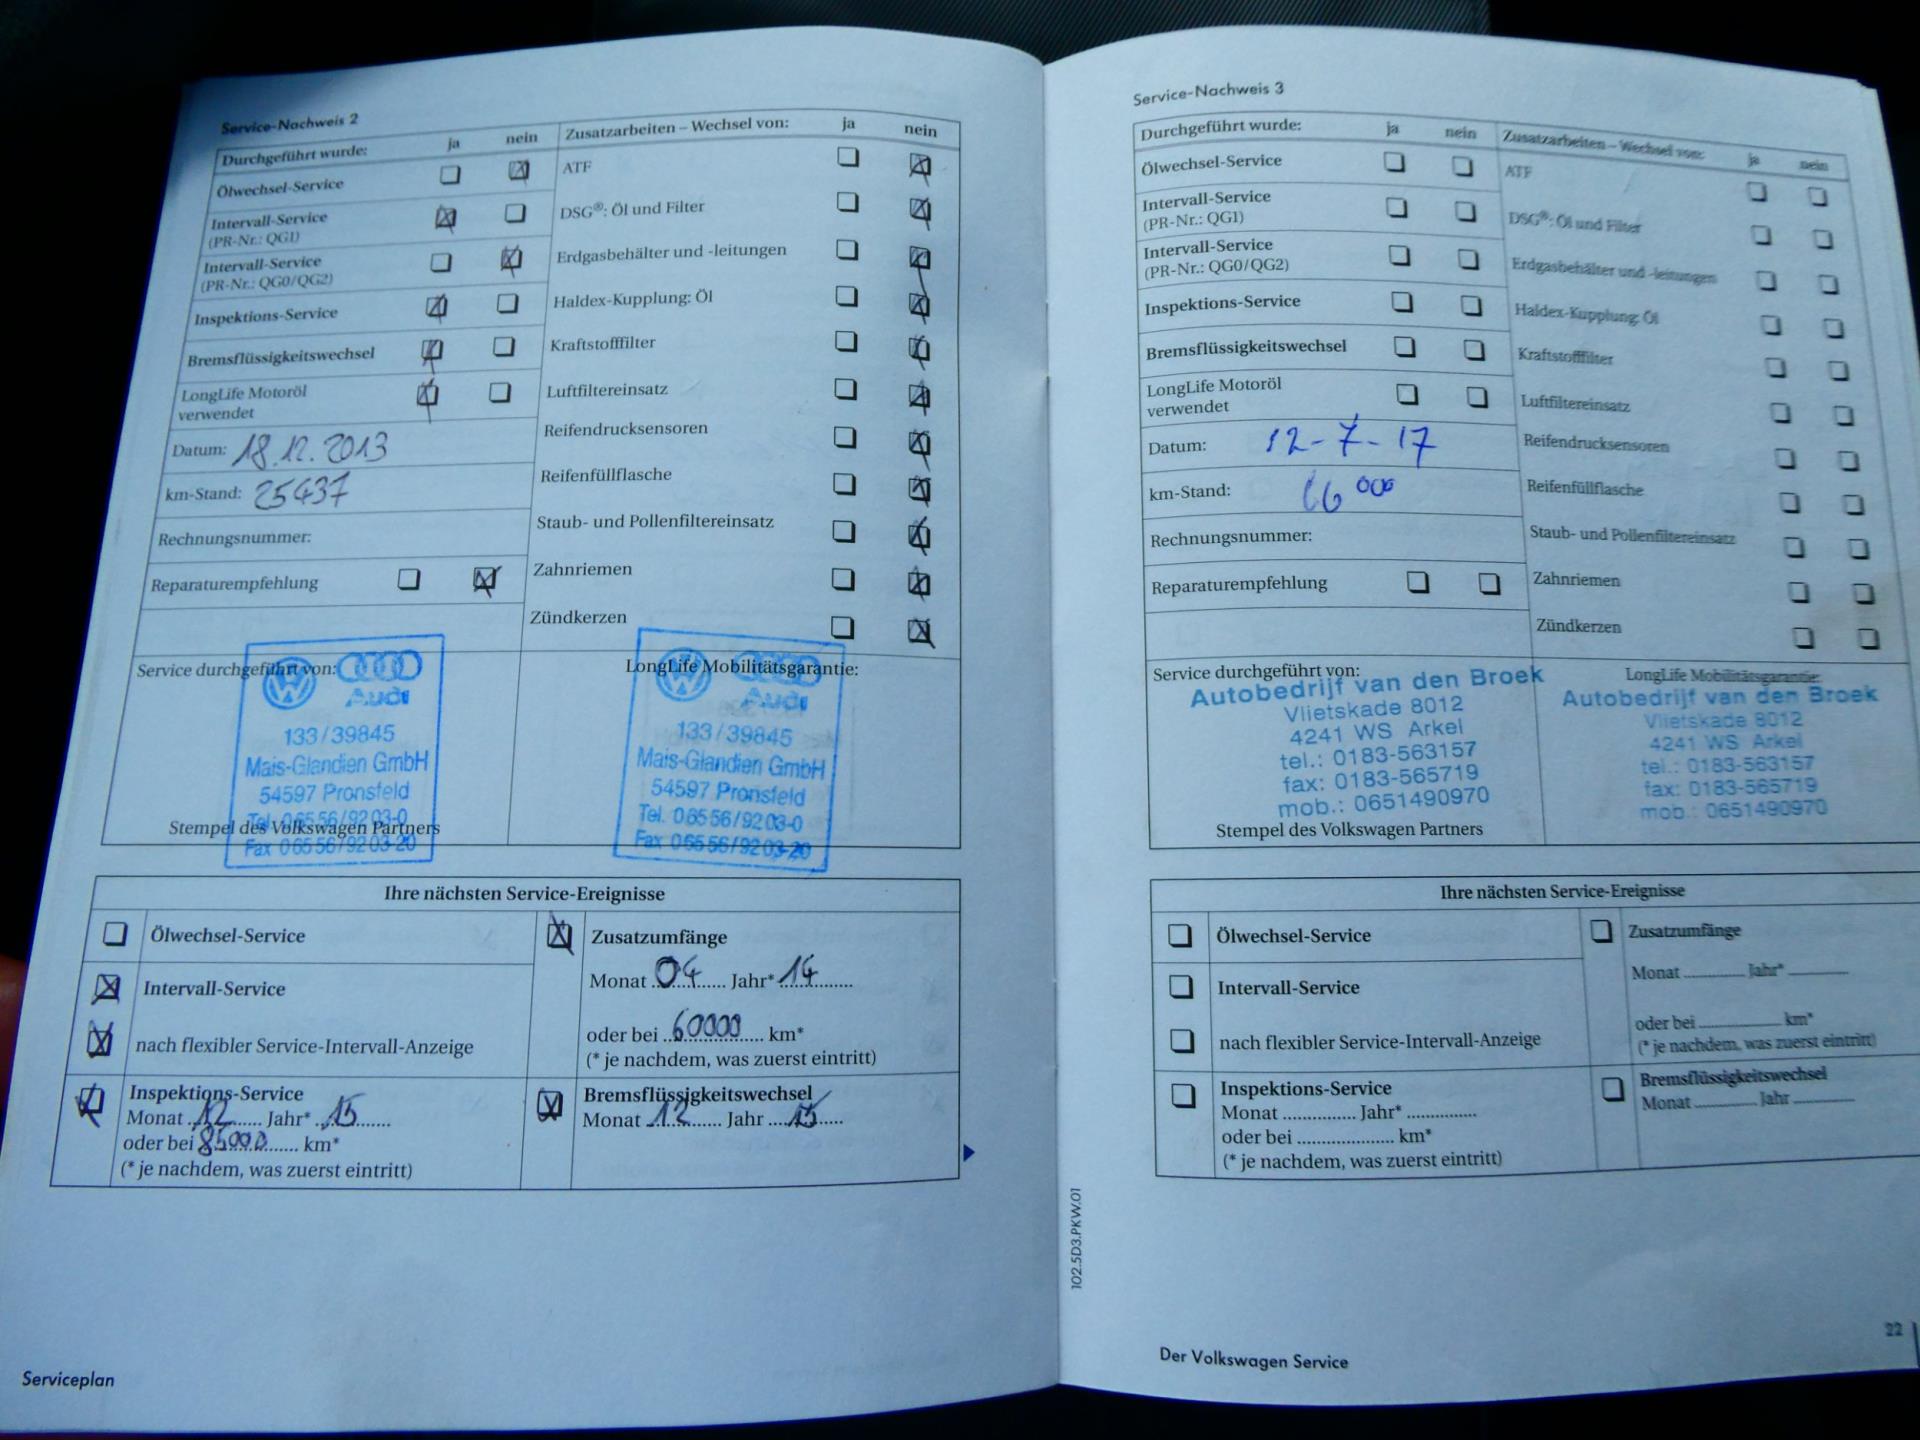 Service-Nachweis 2
Durchgeführt wurde: ja nein
Ölwechsel-Service
Intervall-Service
(PR-Nr.: QG1)
Intervall-Service
(PR-Nr.: QG0/QG2)
Inspektions-Service
Bremsflüssigkeitswechsel
LongLife Motoröl
verwendet
Datum: 18.12.2013
km-Stand: 25437
Rechnungsnummer:
Reparaturempfehlung
Zusatzarbeiten – Wechsel von: ja nein
ATF
DSG®: Öl und Filter
Erdgasbehälter und -leitungen
Haldex-Kupplung: Öl
Kraftstofffilter
Luftfiltereinsatz
Reifendrucksensoren
Reifenfüllflasche
Staub- und Pollenfiltereinsatz
Zahnriemen
Zündkerzen
Service durchgeführt von:
Audi
133/39845
Mais-Glandien GmbH
54597 Pronsfeld
Tel. 06556/9203-0
Fax 06556/9203-20
Stempel des Volkswagen Partners
LongLife Mobilitätsgarantie:
Audi
133/39845
Mais-Glandien GmbH
54597 Pronsfeld
Tel. 06556/9203-0
Fax 06556/9203-20
Ihre nächsten Service-Ereignisse
Ölwechsel-Service
Intervall-Service
nach flexibler Service-Intervall-Anzeige
Inspektions-Service
Monat 12 Jahr* 15
oder bei 85000 km*
(* je nachdem, was zuerst eintritt)
Zusatzumfänge
Monat 04 Jahr* 14
oder bei 60000 km*
(* je nachdem, was zuerst eintritt)
Bremsflüssigkeitswechsel
Monat 12 Jahr 15
Serviceplan
Service-Nachweis 3
Durchgeführt wurde: ja nein
Ölwechsel-Service
Intervall-Service
(PR-Nr.: QG1)
Intervall-Service
(PR-Nr.: QG0/QG2)
Inspektions-Service
Bremsflüssigkeitswechsel
LongLife Motoröl
verwendet
Datum: 12-7-17
km-Stand: 66000
Rechnungsnummer:
Reparaturempfehlung
Zusatzarbeiten – Wechsel von: ja nein
ATF
DSG®: Öl und Filter
Erdgasbehälter und -leitungen
Haldex-Kupplung: Öl
Kraftstofffilter
Luftfiltereinsatz
Reifendrucksensoren
Reifenfüllflasche
Staub- und Pollenfiltereinsatz
Zahnriemen
Zündkerzen
Service durchgeführt von:
Autobedrijf van den Broek
Vlietskade 8012
4241 WS Arkel
tel.: 0183-563157
fax: 0183-565719
mob.: 0651490970
Stempel des Volkswagen Partners
LongLife Mobilitätsgarantie:
Autobedrijf van den Broek
Vlietskade 8012
4241 WS Arkel
tel.: 0183-563157
fax: 0183-565719
mob.: 0651490970
Ihre nächsten Service-Ereignisse
Ölwechsel-Service
Intervall-Service
nach flexibler Service-Intervall-Anzeige
Inspektions-Service
Monat ............... Jahr* ..............
oder bei .................... km*
(* je nachdem, was zuerst eintritt)
Zusatzumfänge
Monat ............. Jahr* .............
oder bei .................. km*
(* je nachdem, was zuerst eintritt)
Bremsflüssigkeitswechsel
Monat ............. Jahr .............
102.5D3.PKW.01
Der Volkswagen Service
22